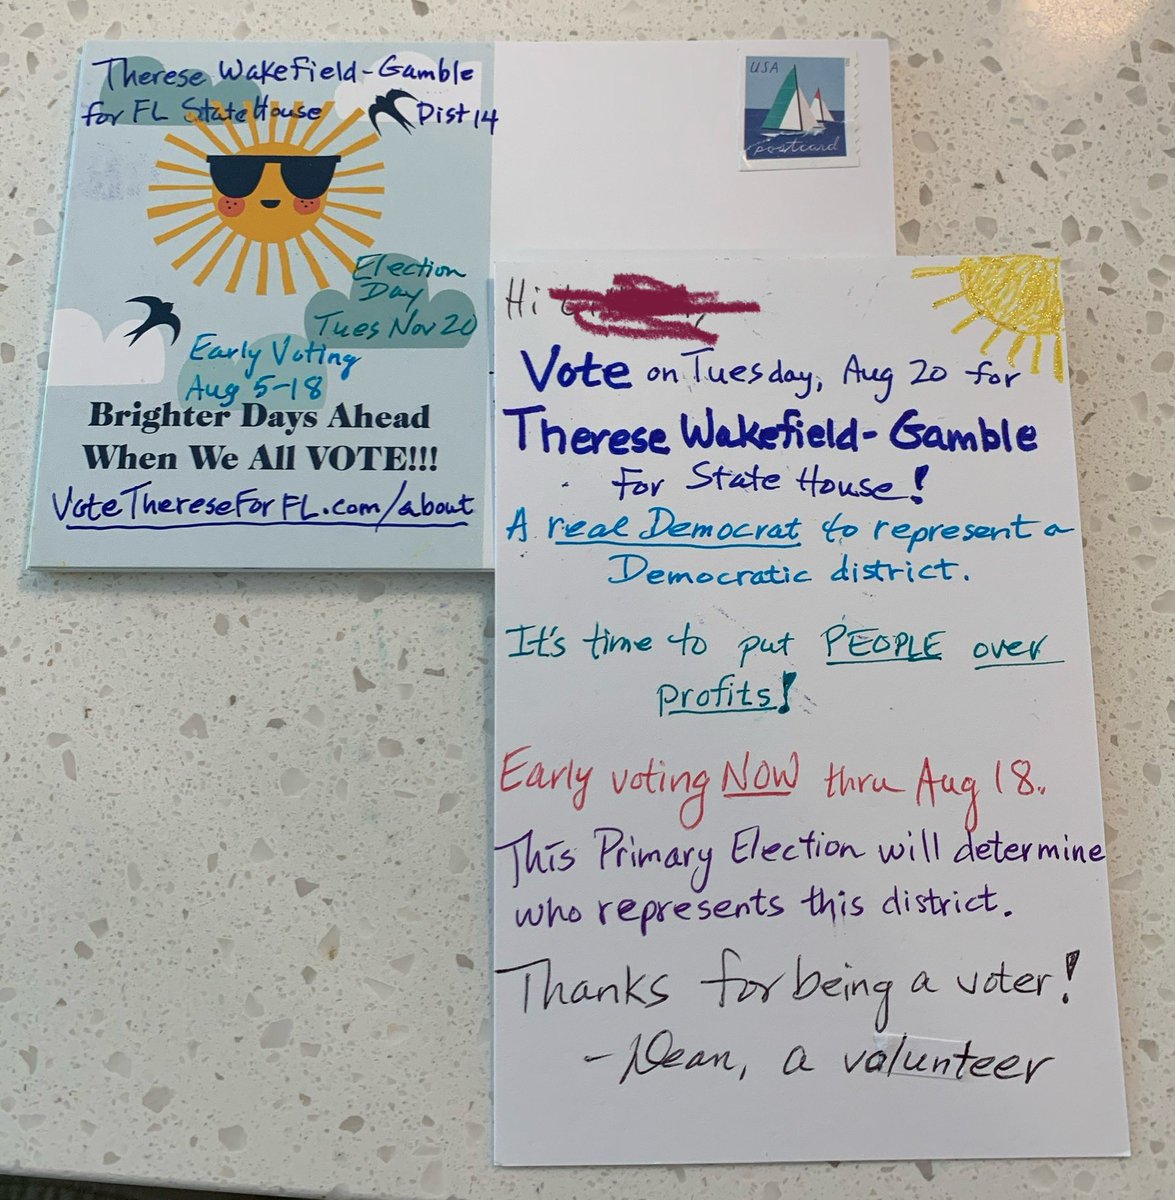 Therese Wakefield-Gamble
for FL State House
Dist 14
Election
Day
Tues Nov 20
Early Voting
Aug 5-18
Brighter Days Ahead
When We All VOTE!!!
VoteThereseForFL.com/about
USA
postcard
Hi
Vote on Tuesday, Aug 20 for
Therese Wakefield-Gamble
for State House!
A real Democrat to represent a
Democratic district.
It's time to put PEOPLE over
profits!
Early voting NOW thru Aug 18.
This Primary Election will determine
who represents this district.
Thanks for being a voter!
-Dean, a volunteer